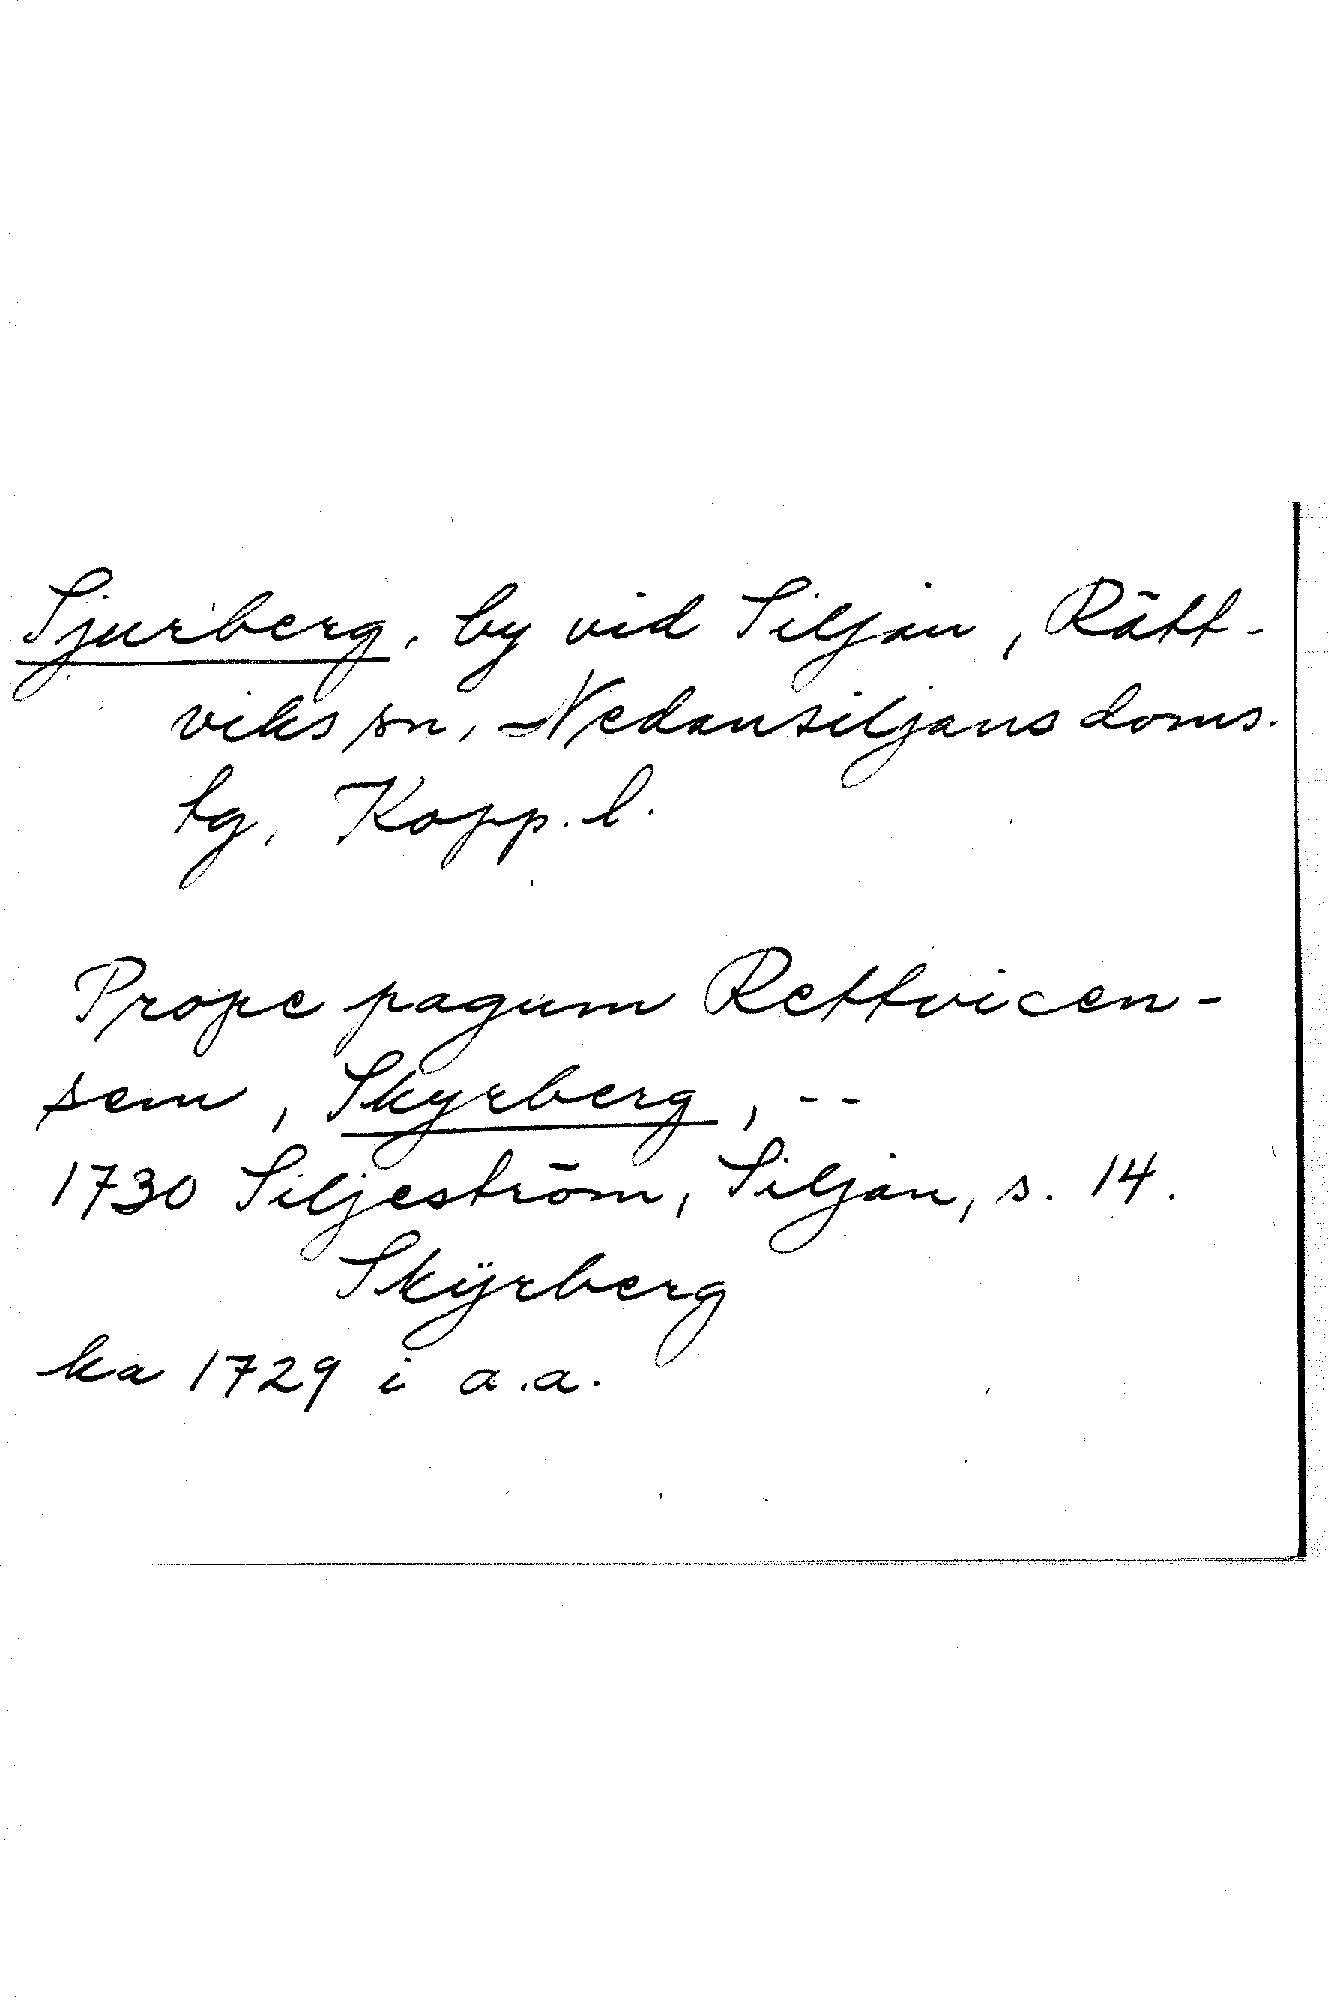 Sjurberg, by vid Siljan, Rätt-
viks sn, Nedansiljans doms.
tg, Kopp. l.
Prope pagum Rettvicen-
sem, Skyrberg, --
1730 Siljeström, Siljan, s. 14.
Skÿrberg
ka 1729 i a.a.